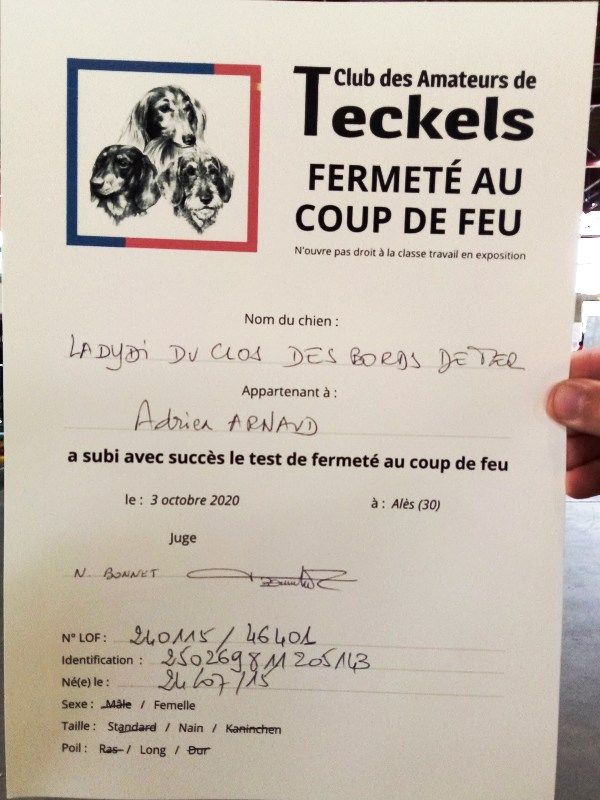 Club des Amateurs de
Teckels
FERMETÉ AU
COUP DE FEU
N'ouvre pas droit à la classe travail en exposition
Nom du chien :
LADYDI DU CLOS DES BORDS DE TER
Appartenant à :
Adrien ARNAUD
a subi avec succès le test de fermeté au coup de feu
le : 3 octobre 2020 à : Alès (30)
Juge
N. BONNET
N° LOF : 240115 / 46401
Identification : 250269811205143
Né(e) le : 24/07/15
Sexe : Mâle / Femelle
Taille : Standard / Nain / Kaninchen
Poil : Ras / Long / Dur